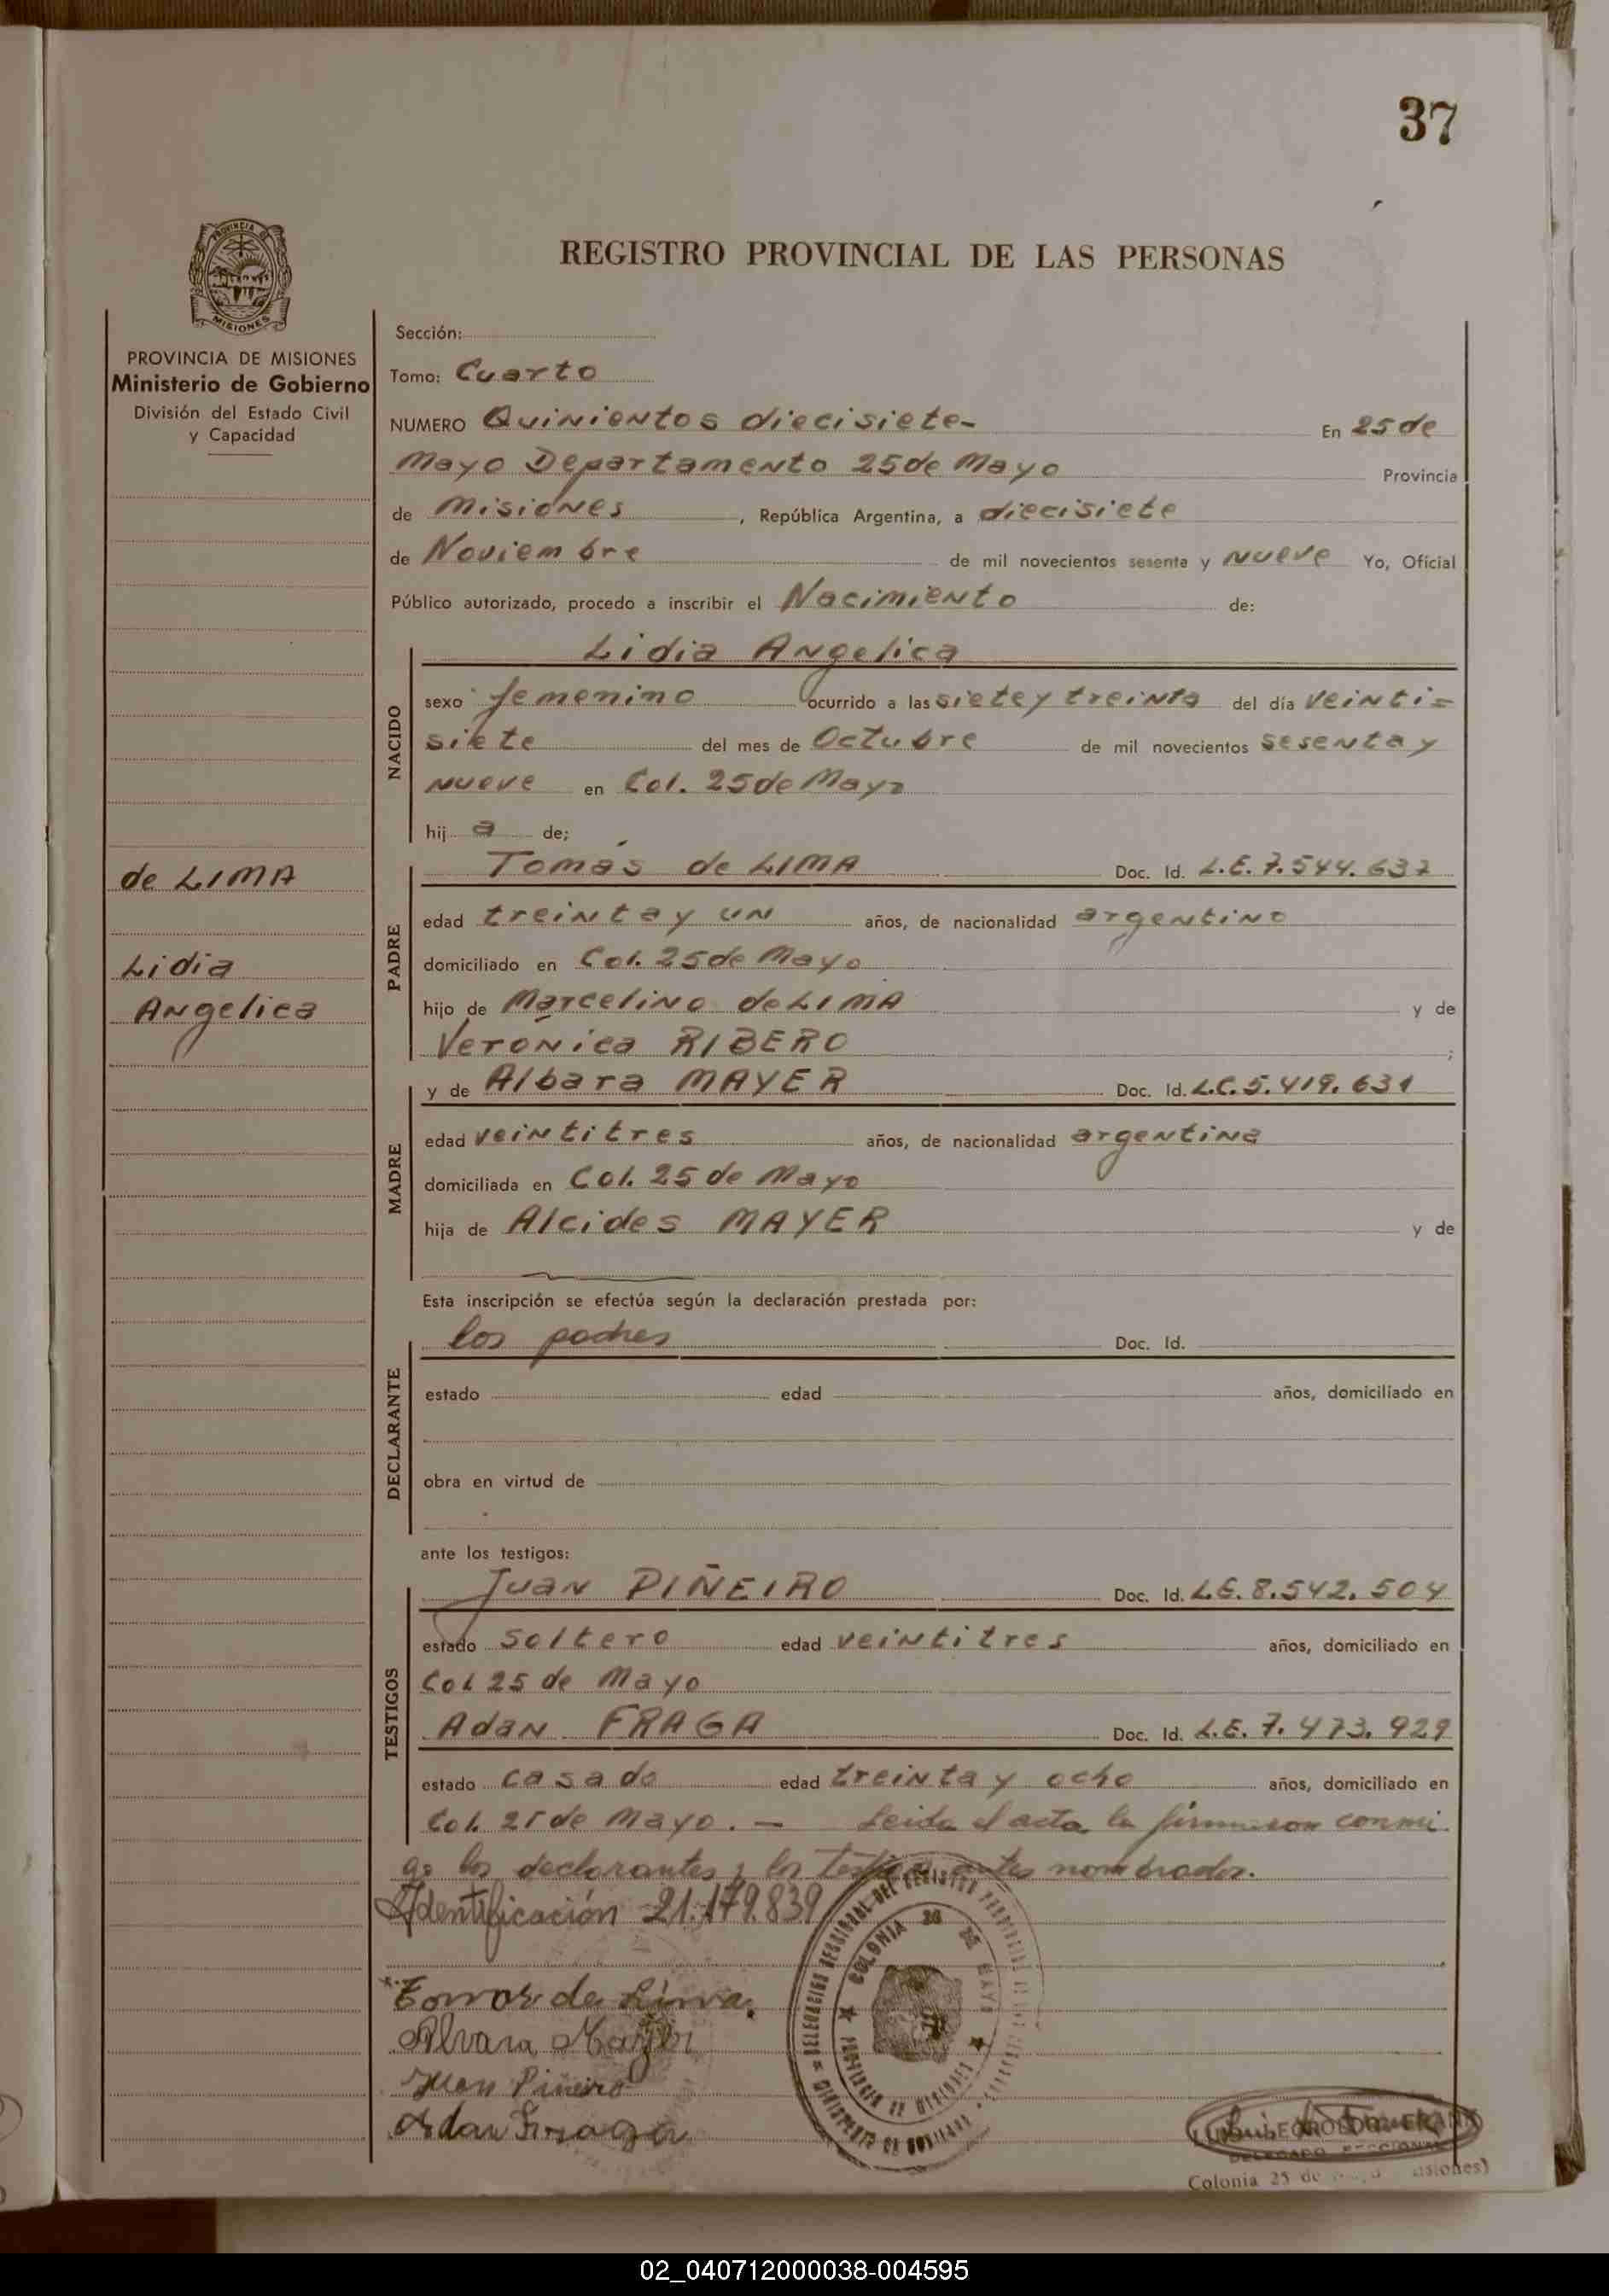 37
REGISTRO PROVINCIAL DE LAS PERSONAS
PROVINCIA DE MISIONES
Ministerio de Gobierno
División del Estado Civil
y Capacidad
de LIMA
Lidia
Angelica
Sección:
Tomo: Cuarto
NUMERO Quinientos diecisiete- En 25 de
Mayo Departamento 25 de Mayo Provincia
de Misiones, República Argentina, a diecisiete
de Noviembre de mil novecientos sesenta y nueve Yo, Oficial
Público autorizado, procedo a inscribir el Nacimiento de:
NACIDO
Lidia Angelica
sexo femenino ocurrido a las siete y treinta del día veinti=
siete del mes de Octubre de mil novecientos sesenta y
nueve en Col. 25 de Mayo
hij a de;
PADRE
Tomás de LIMA Doc. Id. L.E. 7.544.637
edad treinta y un años, de nacionalidad argentino
domiciliado en Col. 25 de Mayo
hijo de Marcelino de LIMA y de
Veronica RIBERO ;
MADRE
y de Albara MAYER Doc. Id. L.C. 5.419.631
edad veintitres años, de nacionalidad argentina
domiciliada en Col. 25 de Mayo
hija de Alcides MAYER y de
Esta inscripción se efectúa según la declaración prestada por:
DECLARANTE
los padres Doc. Id.
estado edad años, domiciliado en
obra en virtud de
ante los testigos:
TESTIGOS
Juan PIÑEIRO Doc. Id. L.E. 8.542.504
estado soltero edad veintitres años, domiciliado en
Col 25 de Mayo
Adan FRAGA Doc. Id. L.E. 7.473.929
estado casado edad treinta y ocho años, domiciliado en
Col. 25 de Mayo. — Leida el acta, la firmaron conmi
go los declarantes y los testigos antes nombrados.
Identificación 21.179.839
Tomas de Lima.
Alvara Mayer
Juan Piñeiro
Adan Fraga
COLONIA 25 DE MAYO
PROVINCIA DE MISIONES
Colonia 25 de
02_040712000038-004595